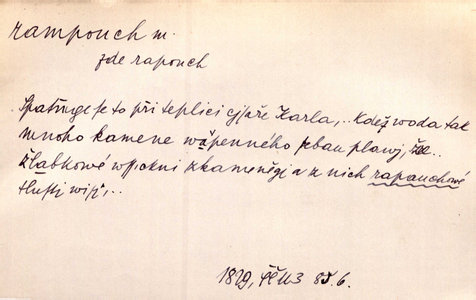 rampouch m.
zde rapouch
Spatřuge se to při teplici cjsaře Karla,.. kdež woda tak
mnoho kamene wápenného sebau plawj, že..
žlabkowé wssickni zkameněgj a z nich rapauchowé
tlustj wisý,..
1829, ČČM3 85.6.